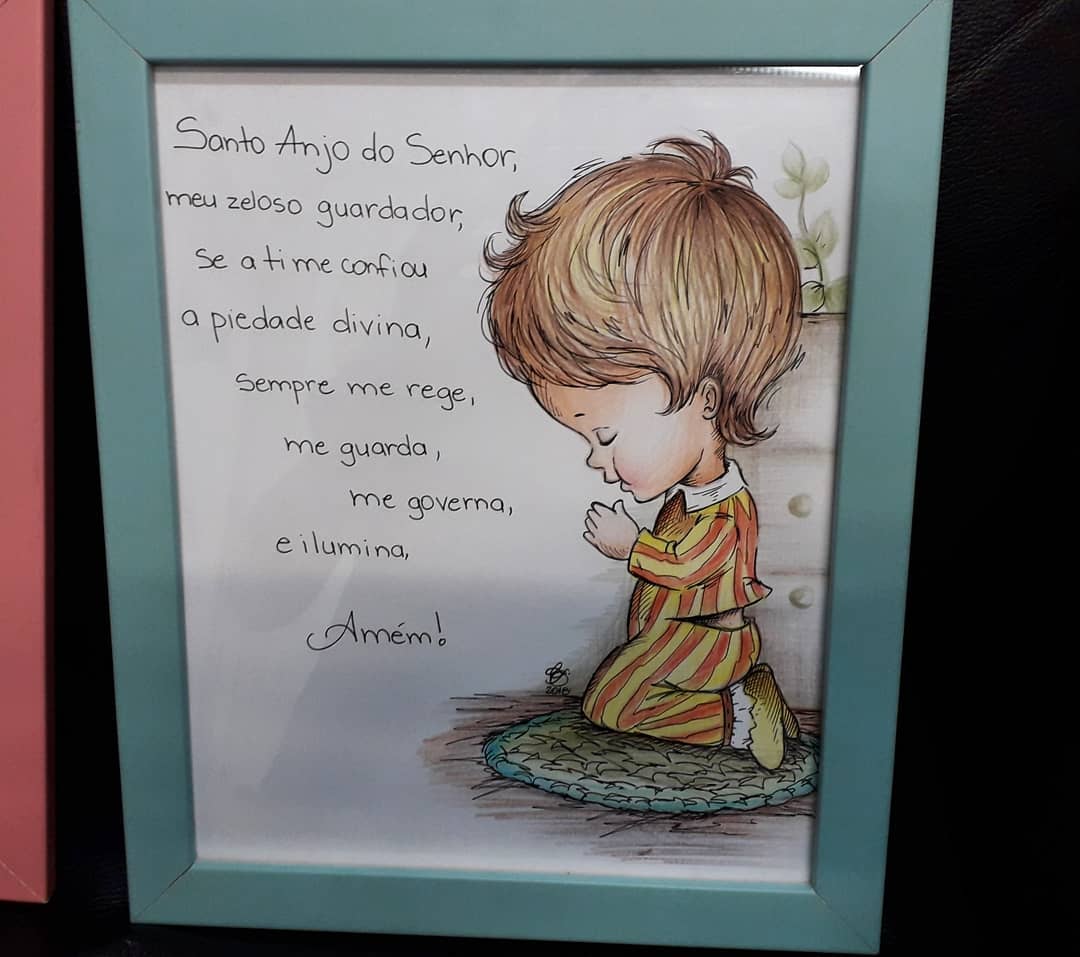 Santo Anjo do Senhor,
meu zeloso guardador,
se a ti me confiou
a piedade divina,
sempre me rege,
me guarda,
me governa,
e ilumina,
Amém!
2018